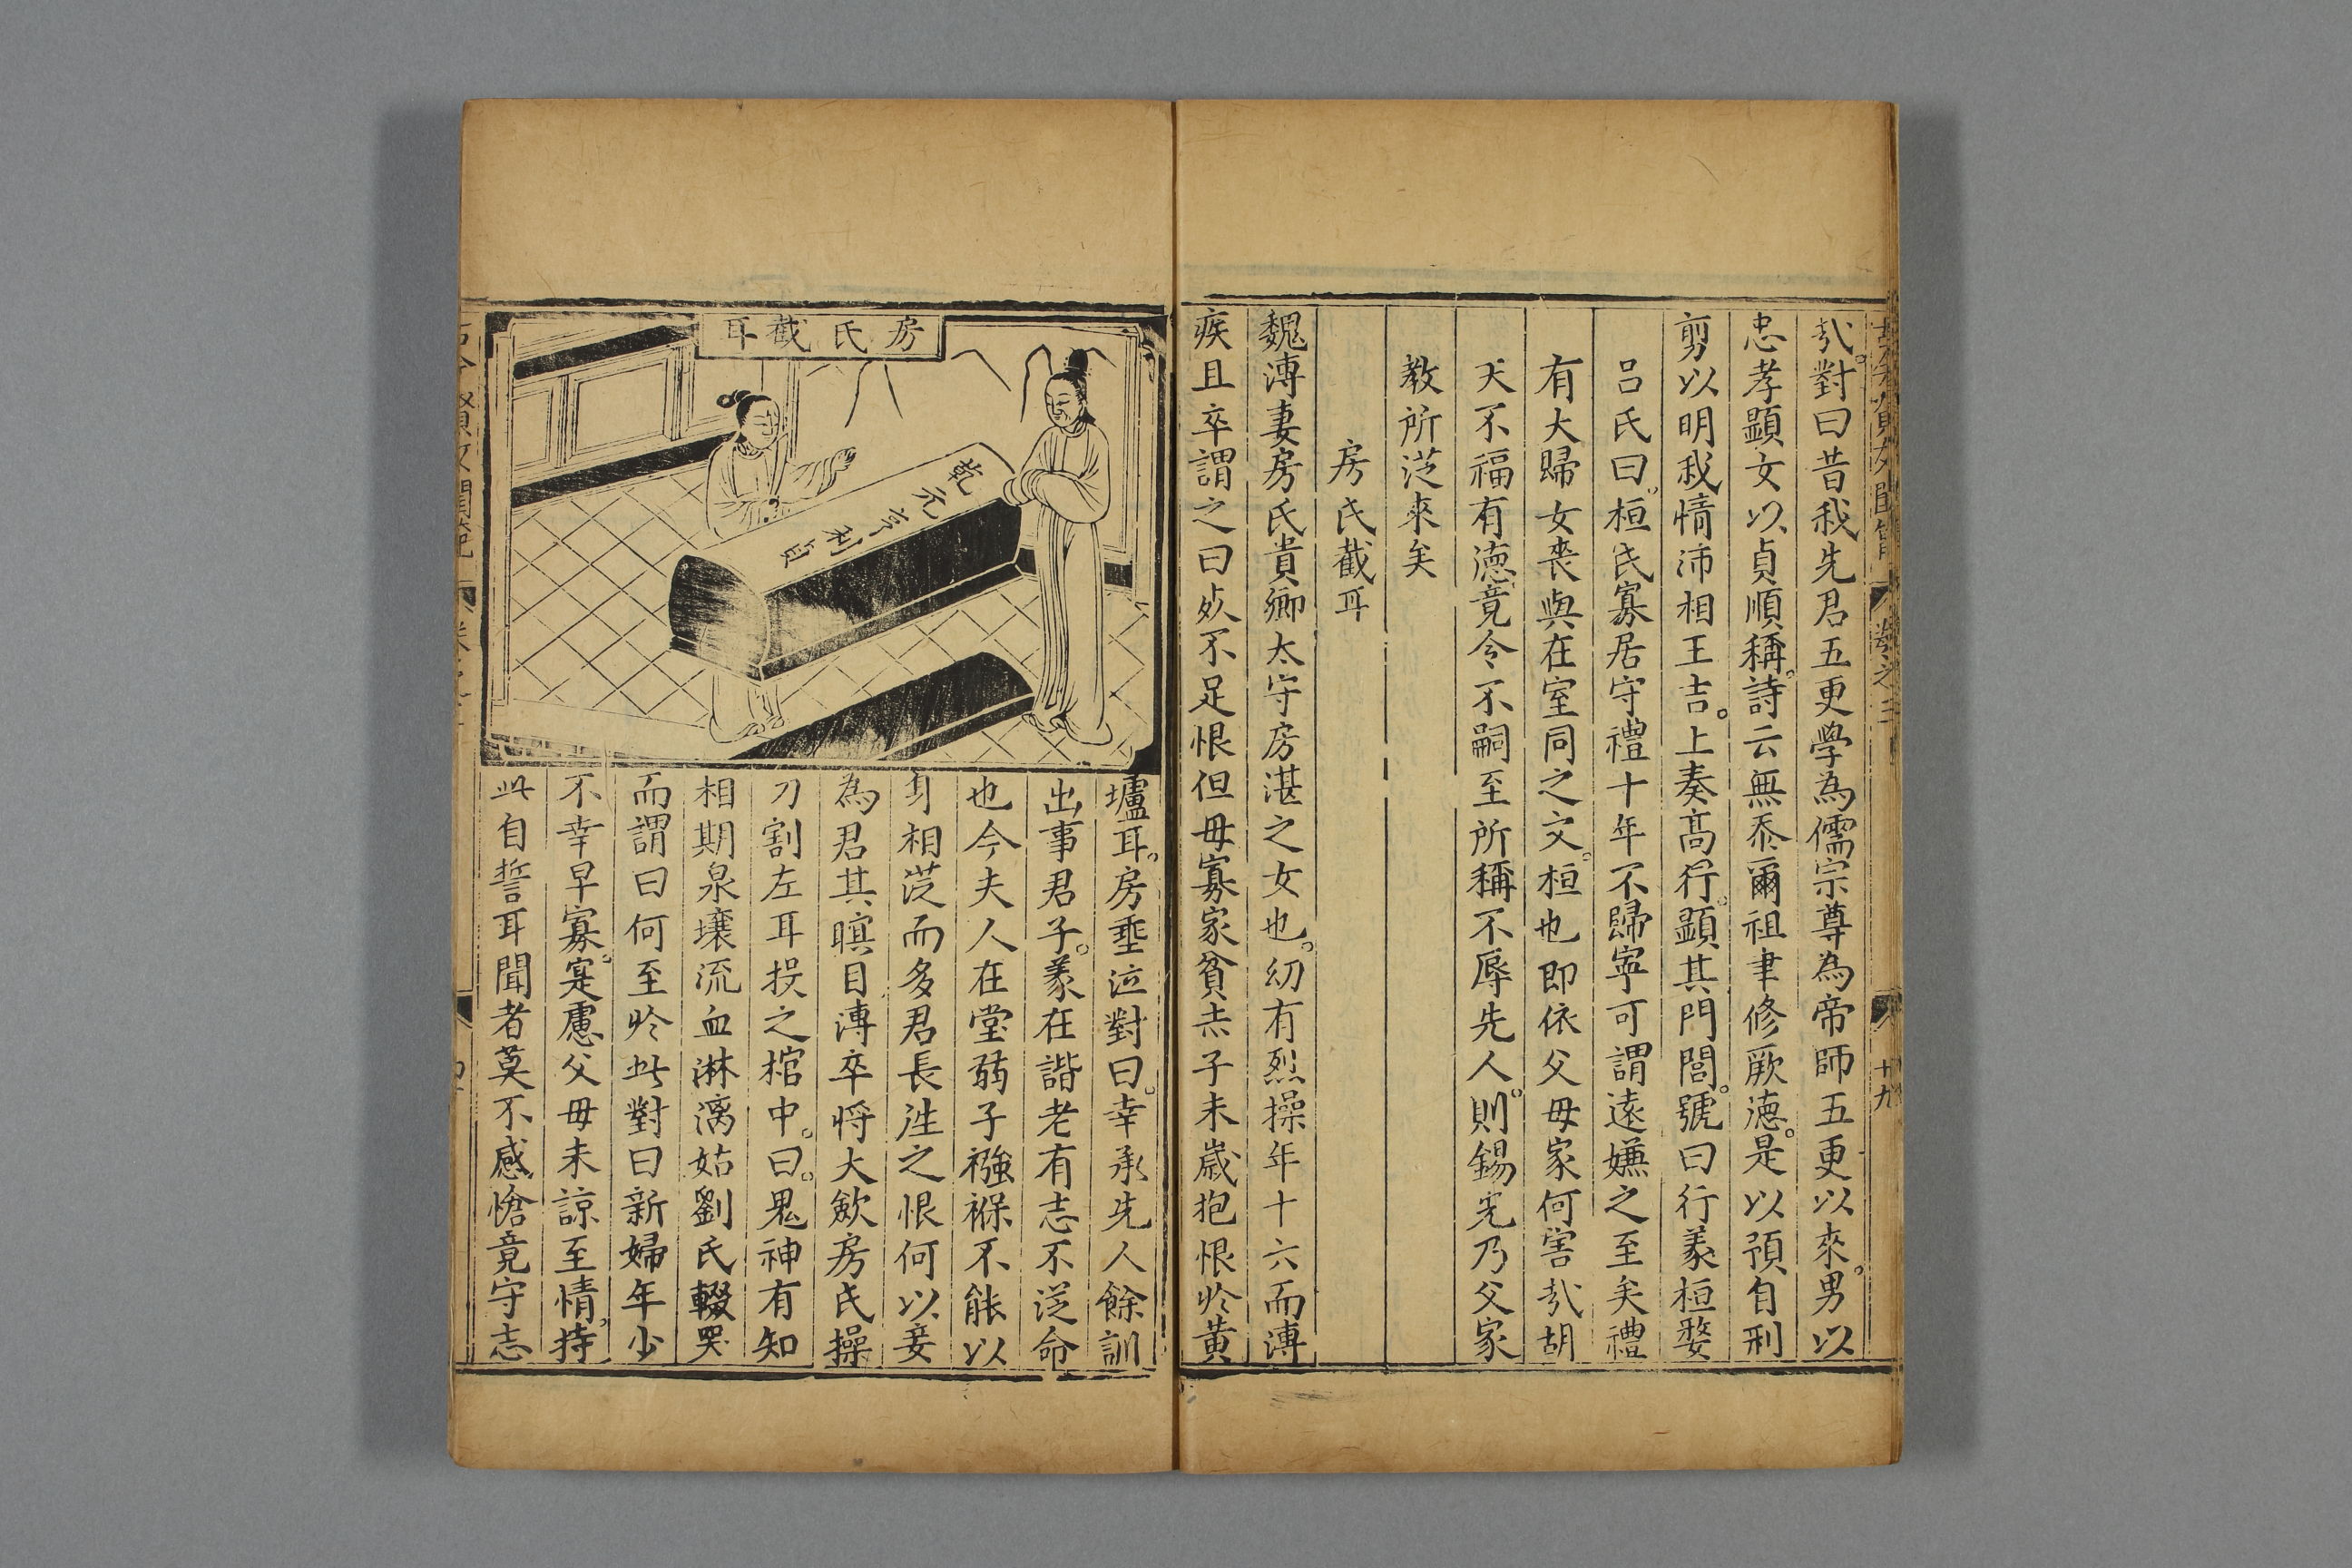 哉對曰昔我先君五更學為儒宗尊為帝師五更以來男以
忠孝顯女以貞順稱詩云無忝爾祖聿修厥德是以預自刑
剪以明我情沛相王吉上奏高行顯其門閭號曰行義桓嫠
呂氏曰桓氏寡居守禮十年不歸寧可謂遠嫌之至矣禮
有大歸女喪與在室同之文桓也即依父母家何害哉胡
天不福有德竟令不嗣至所稱不辱先人則錫羌乃父家
教所從來矣
房氏截耳
魏溥妻房氏貴鄉太守房湛之女也幼有烈操年十六而溥
疾且卒謂之曰死不足恨但母寡家貧赤子未歲抱恨於黃
卷之三
十九
房氏截耳
乾元亨利貞
壚耳房垂泣對曰幸承先人餘訓
出事君子義在諧老有志不從命
也今夫人在堂弱子襁褓不能以
身相從而多君長往之恨何以妾
為君其瞑目溥卒將大斂房氏操
刀割左耳投之棺中曰鬼神有知
相期泉壤流血淋漓姑劉氏輟哭
而謂曰何至於此對曰新婦年少
不幸早寡寔慮父母未諒至情持
此自誓耳聞者莫不感愴竟守志